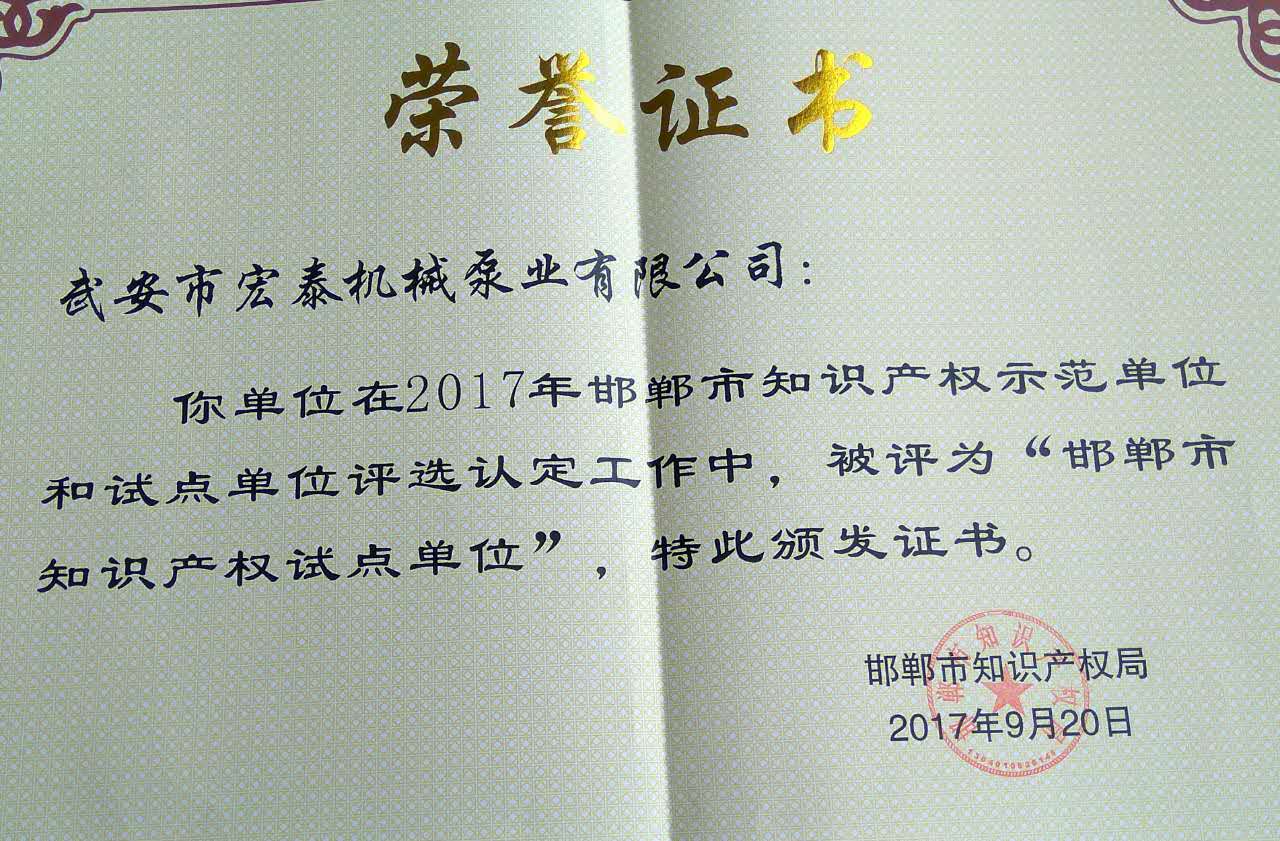 荣誉证书
武安市宏泰机械泵业有限公司：
你单位在2017年邯郸市知识产权示范单位
和试点单位评选认定工作中，被评为“邯郸市
知识产权试点单位”，特此颁发证书。
邯郸市知识产权局
2017年9月20日
邯郸市知识产权局